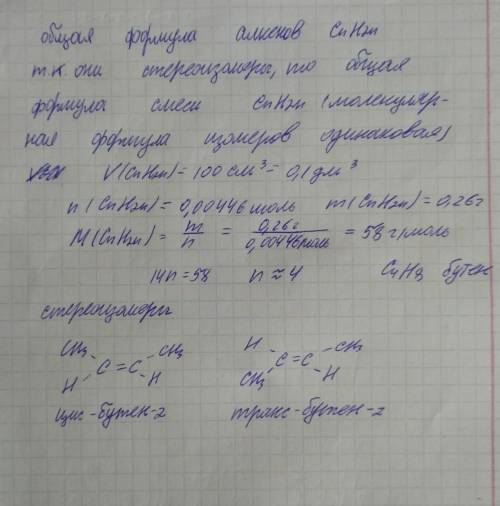 общая формула алкенов CnH2n
т.к. они стереоизомеры, то общая
формула смеси CnH2n (молекуляр-
ная формула изомеров одинаковая)
V(CnH2n)=100 см³=0,1 дм³
n(CnH2n)=0,00446 моль m(CnH2n)=0,26г
M(CnH2n)= m/n = 0,26г/0,00446моль = 58 г/моль
14n=58 n≈4 C4H8 бутен
стереоизомеры
CH3 CH3 H CH3
C=C C=C
H H CH3 H
цис-бутен-2 транс-бутен-2